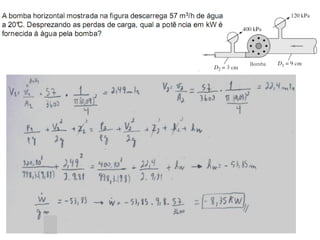 A bomba horizontal mostrada na figura descarrega 57 m³/h de água
a 20°C. Desprezando as perdas de carga, qual a potência em kW é
fornecida à água pela bomba?
120 kPa
400 kPa
Bomba
D₂ = 3 cm
D₁ = 9 cm
V₁ = V̇₁/A₂ = 57/3600 · 1/(π(0,09)²/4) = 2,49 m/s
V₂ = V̇₂/A₂ = 57/3600 · 1/(π(0,03)²/4) = 22,4 m/s
P₁/ρg + V₁²/2g + z₁ = P₂/ρg + V₂²/2g + z₂ + hw
+ 2,49²/2·9,81 = 400.10³/998,3(9,81) + 22,4/2·9,81 + hw → hw = -53,85 m
ẇ/gm = -53,85 → ẇ = -53,85 · 9,8 · 57/3600 = -8,35 KW